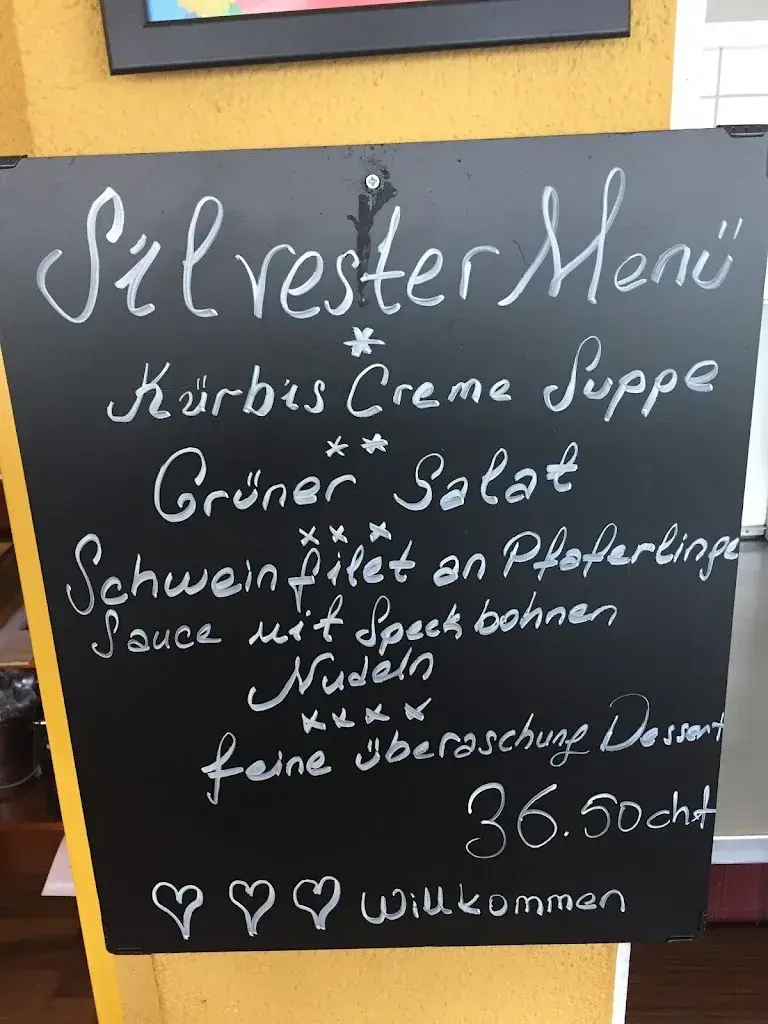 Silvester Menü
*
Kürbis Creme Suppe
* *
Grüner Salat
x x x
Schweinfilet an Pfaferlinge
Sauce mit Speck bohnen
Nudeln
x x x x
feine überaschung Dessert
36.50 chf
♡ ♡ ♡ Willkommen